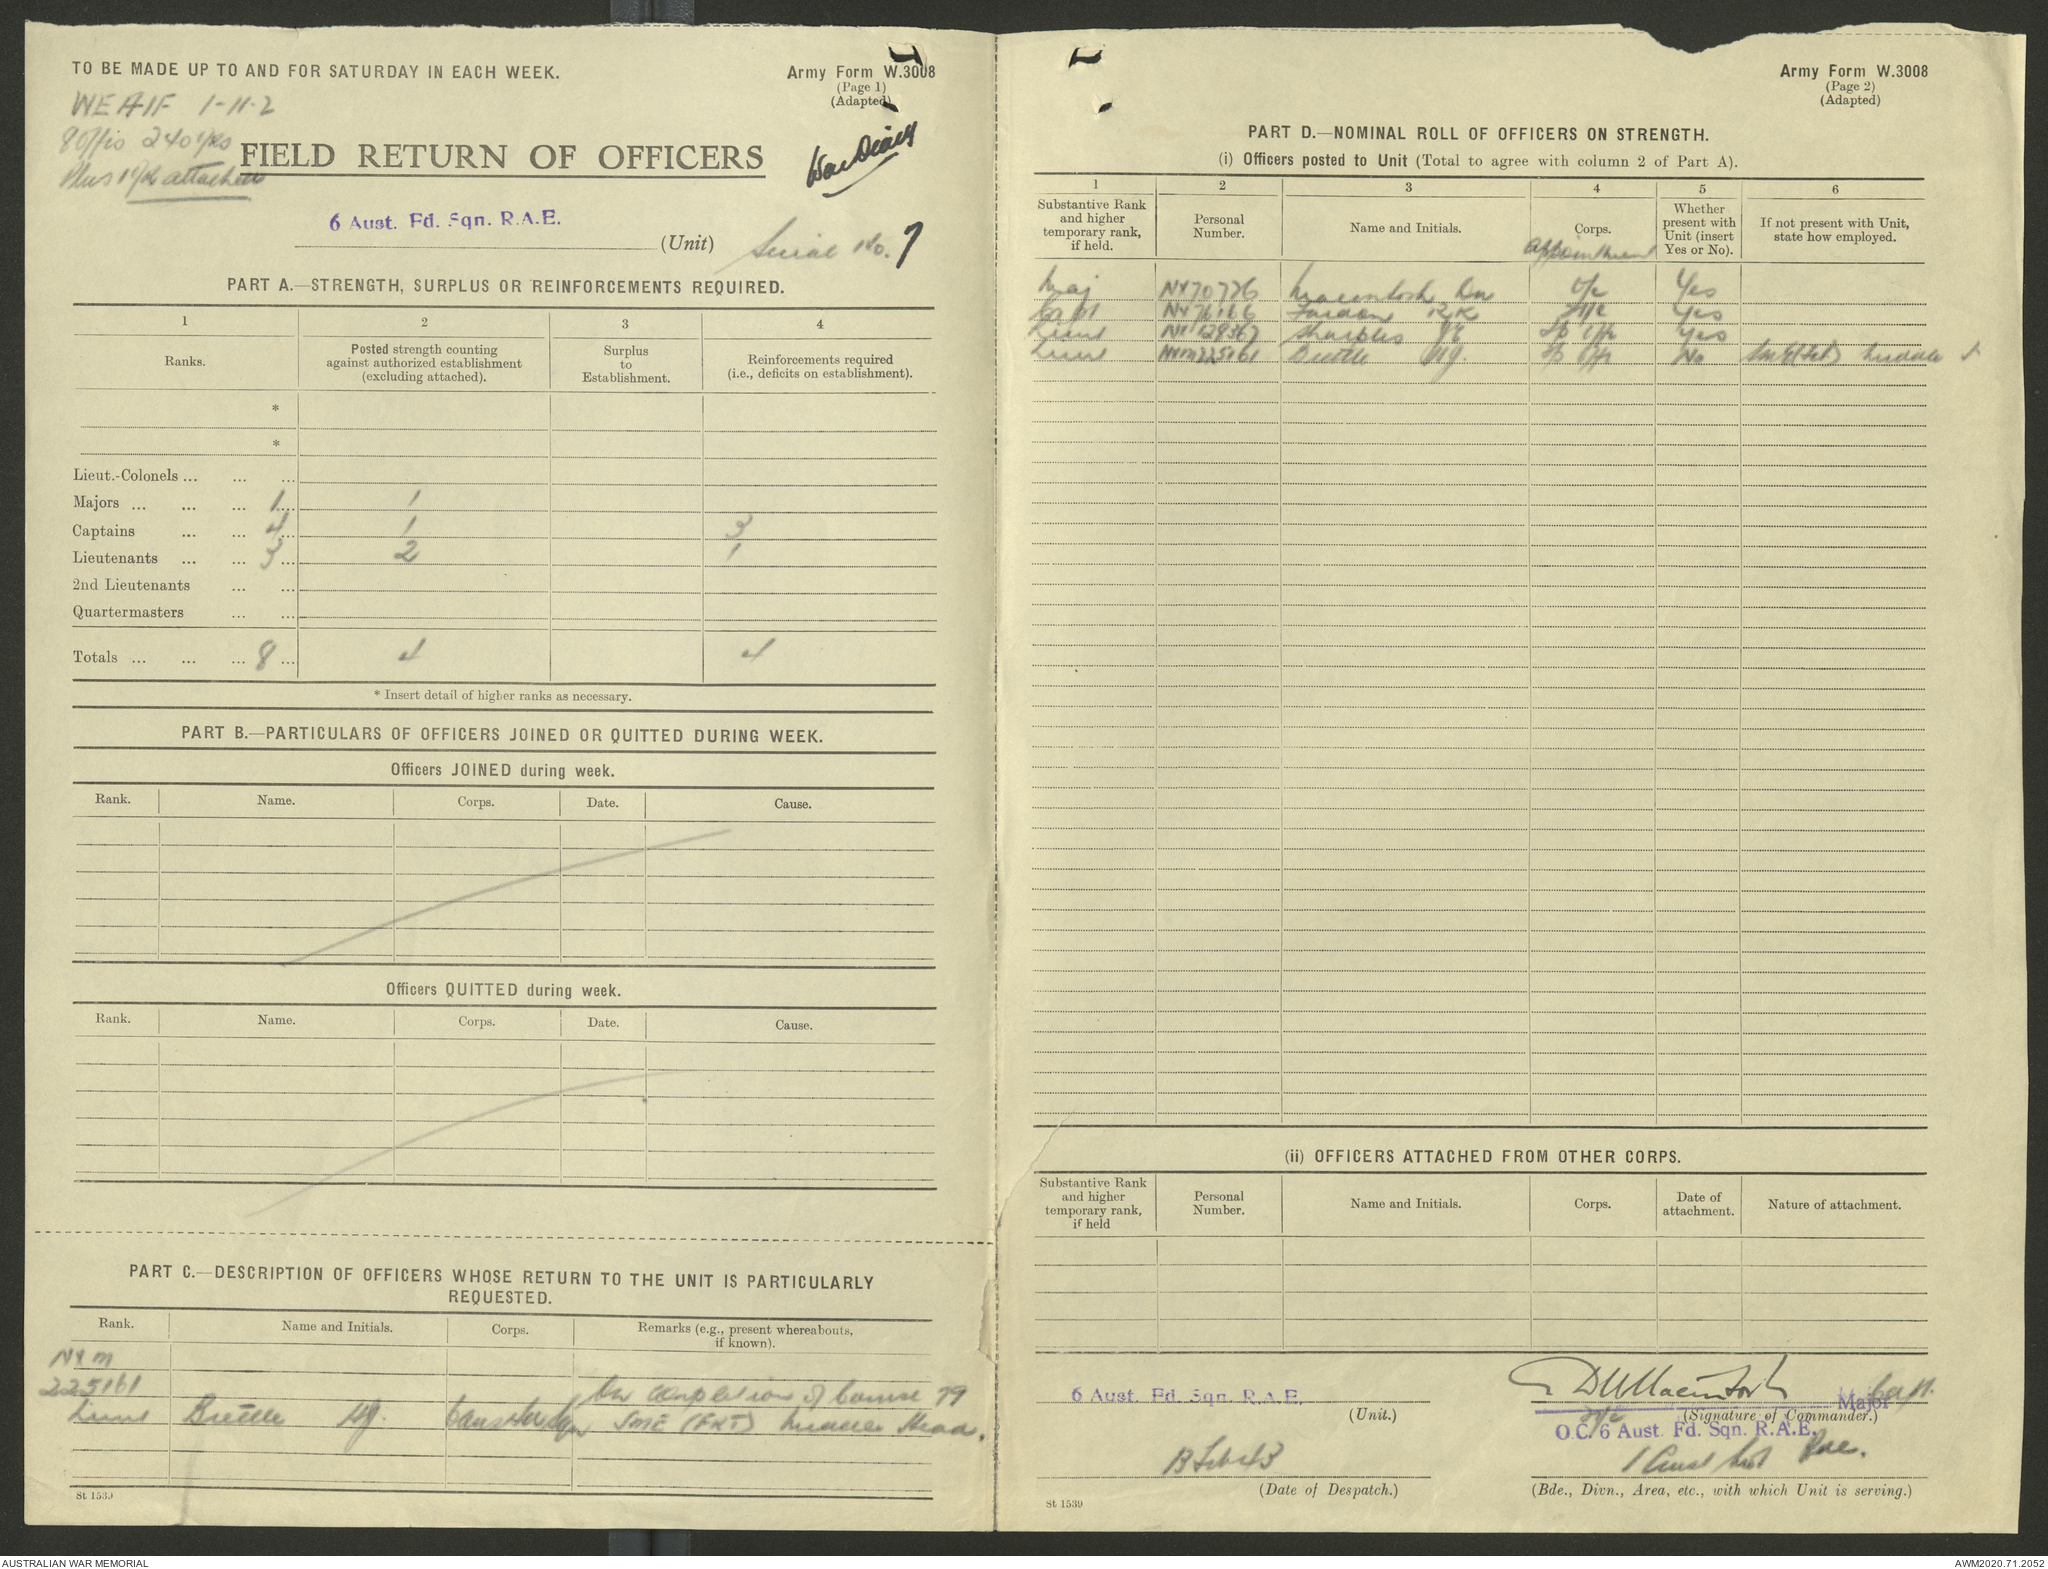 TO BE MADE UP TO AND FOR SATURDAY IN EACH WEEK.
Army Form W.3008
(Page 1)
(Adapted)
WE AIF 1-11-2
8 offrs 240 ORs
Plus attached
War Diary
FIELD RETURN OF OFFICERS
6 Aust. Fd. Sqn. R.A.E.
(Unit)
Serial No. 7
PART A.—STRENGTH, SURPLUS OR REINFORCEMENTS REQUIRED.
1 2 3 4
Ranks. Posted strength counting against authorized establishment (excluding attached). Surplus to Establishment. Reinforcements required (i.e., deficits on establishment).
*
*
Lieut.-Colonels ... ... ...
Majors ... ... ... 1 ... 1
Captains ... ... 4 ... 1 3
Lieutenants ... ... 3 ... 2 1
2nd Lieutenants ... ...
Quartermasters ... ...
Totals ... ... ... 8 ... 4 4
* Insert detail of higher ranks as necessary.
PART B.—PARTICULARS OF OFFICERS JOINED OR QUITTED DURING WEEK.
Officers JOINED during week.
Rank. Name. Corps. Date. Cause.
Officers QUITTED during week.
Rank. Name. Corps. Date. Cause.
PART C.—DESCRIPTION OF OFFICERS WHOSE RETURN TO THE UNIT IS PARTICULARLY
REQUESTED.
Rank. Name and Initials. Corps. Remarks (e.g., present whereabouts, if known).
NXM
225161 On completion of Course 79
Lieut Brettle HG. SME (FKT) Middle Head.
St 1539
Army Form W.3008
(Page 2)
(Adapted)
PART D.—NOMINAL ROLL OF OFFICERS ON STRENGTH.
(i) Officers posted to Unit (Total to agree with column 2 of Part A).
1 2 3 4 5 6
Substantive Rank and higher temporary rank, if held. Personal Number. Name and Initials. Corps. Whether present with Unit (insert Yes or No). If not present with Unit, state how employed.
Appointment
Maj NX70776 Macintosh DM O/C Yes
Capt NX76166 RK 2I/C Yes
Lieut NX128367 Sharples Yes
Lieut NXM225161 Brettle HG. No
(ii) OFFICERS ATTACHED FROM OTHER CORPS.
Substantive Rank and higher temporary rank, if held Personal Number. Name and Initials. Corps. Date of attachment. Nature of attachment.
6 Aust. Fd. Sqn. R.A.E.
(Unit.)
DMMacintosh
Major
(Signature of Commander.)
O.C. 6 Aust. Fd. Sqn. R.A.E.
13 Feb 43
(Date of Despatch.)
1 Aust Mot Bde.
(Bde., Divn., Area, etc., with which Unit is serving.)
St 1539
AUSTRALIAN WAR MEMORIAL
AWM2020.71.2052